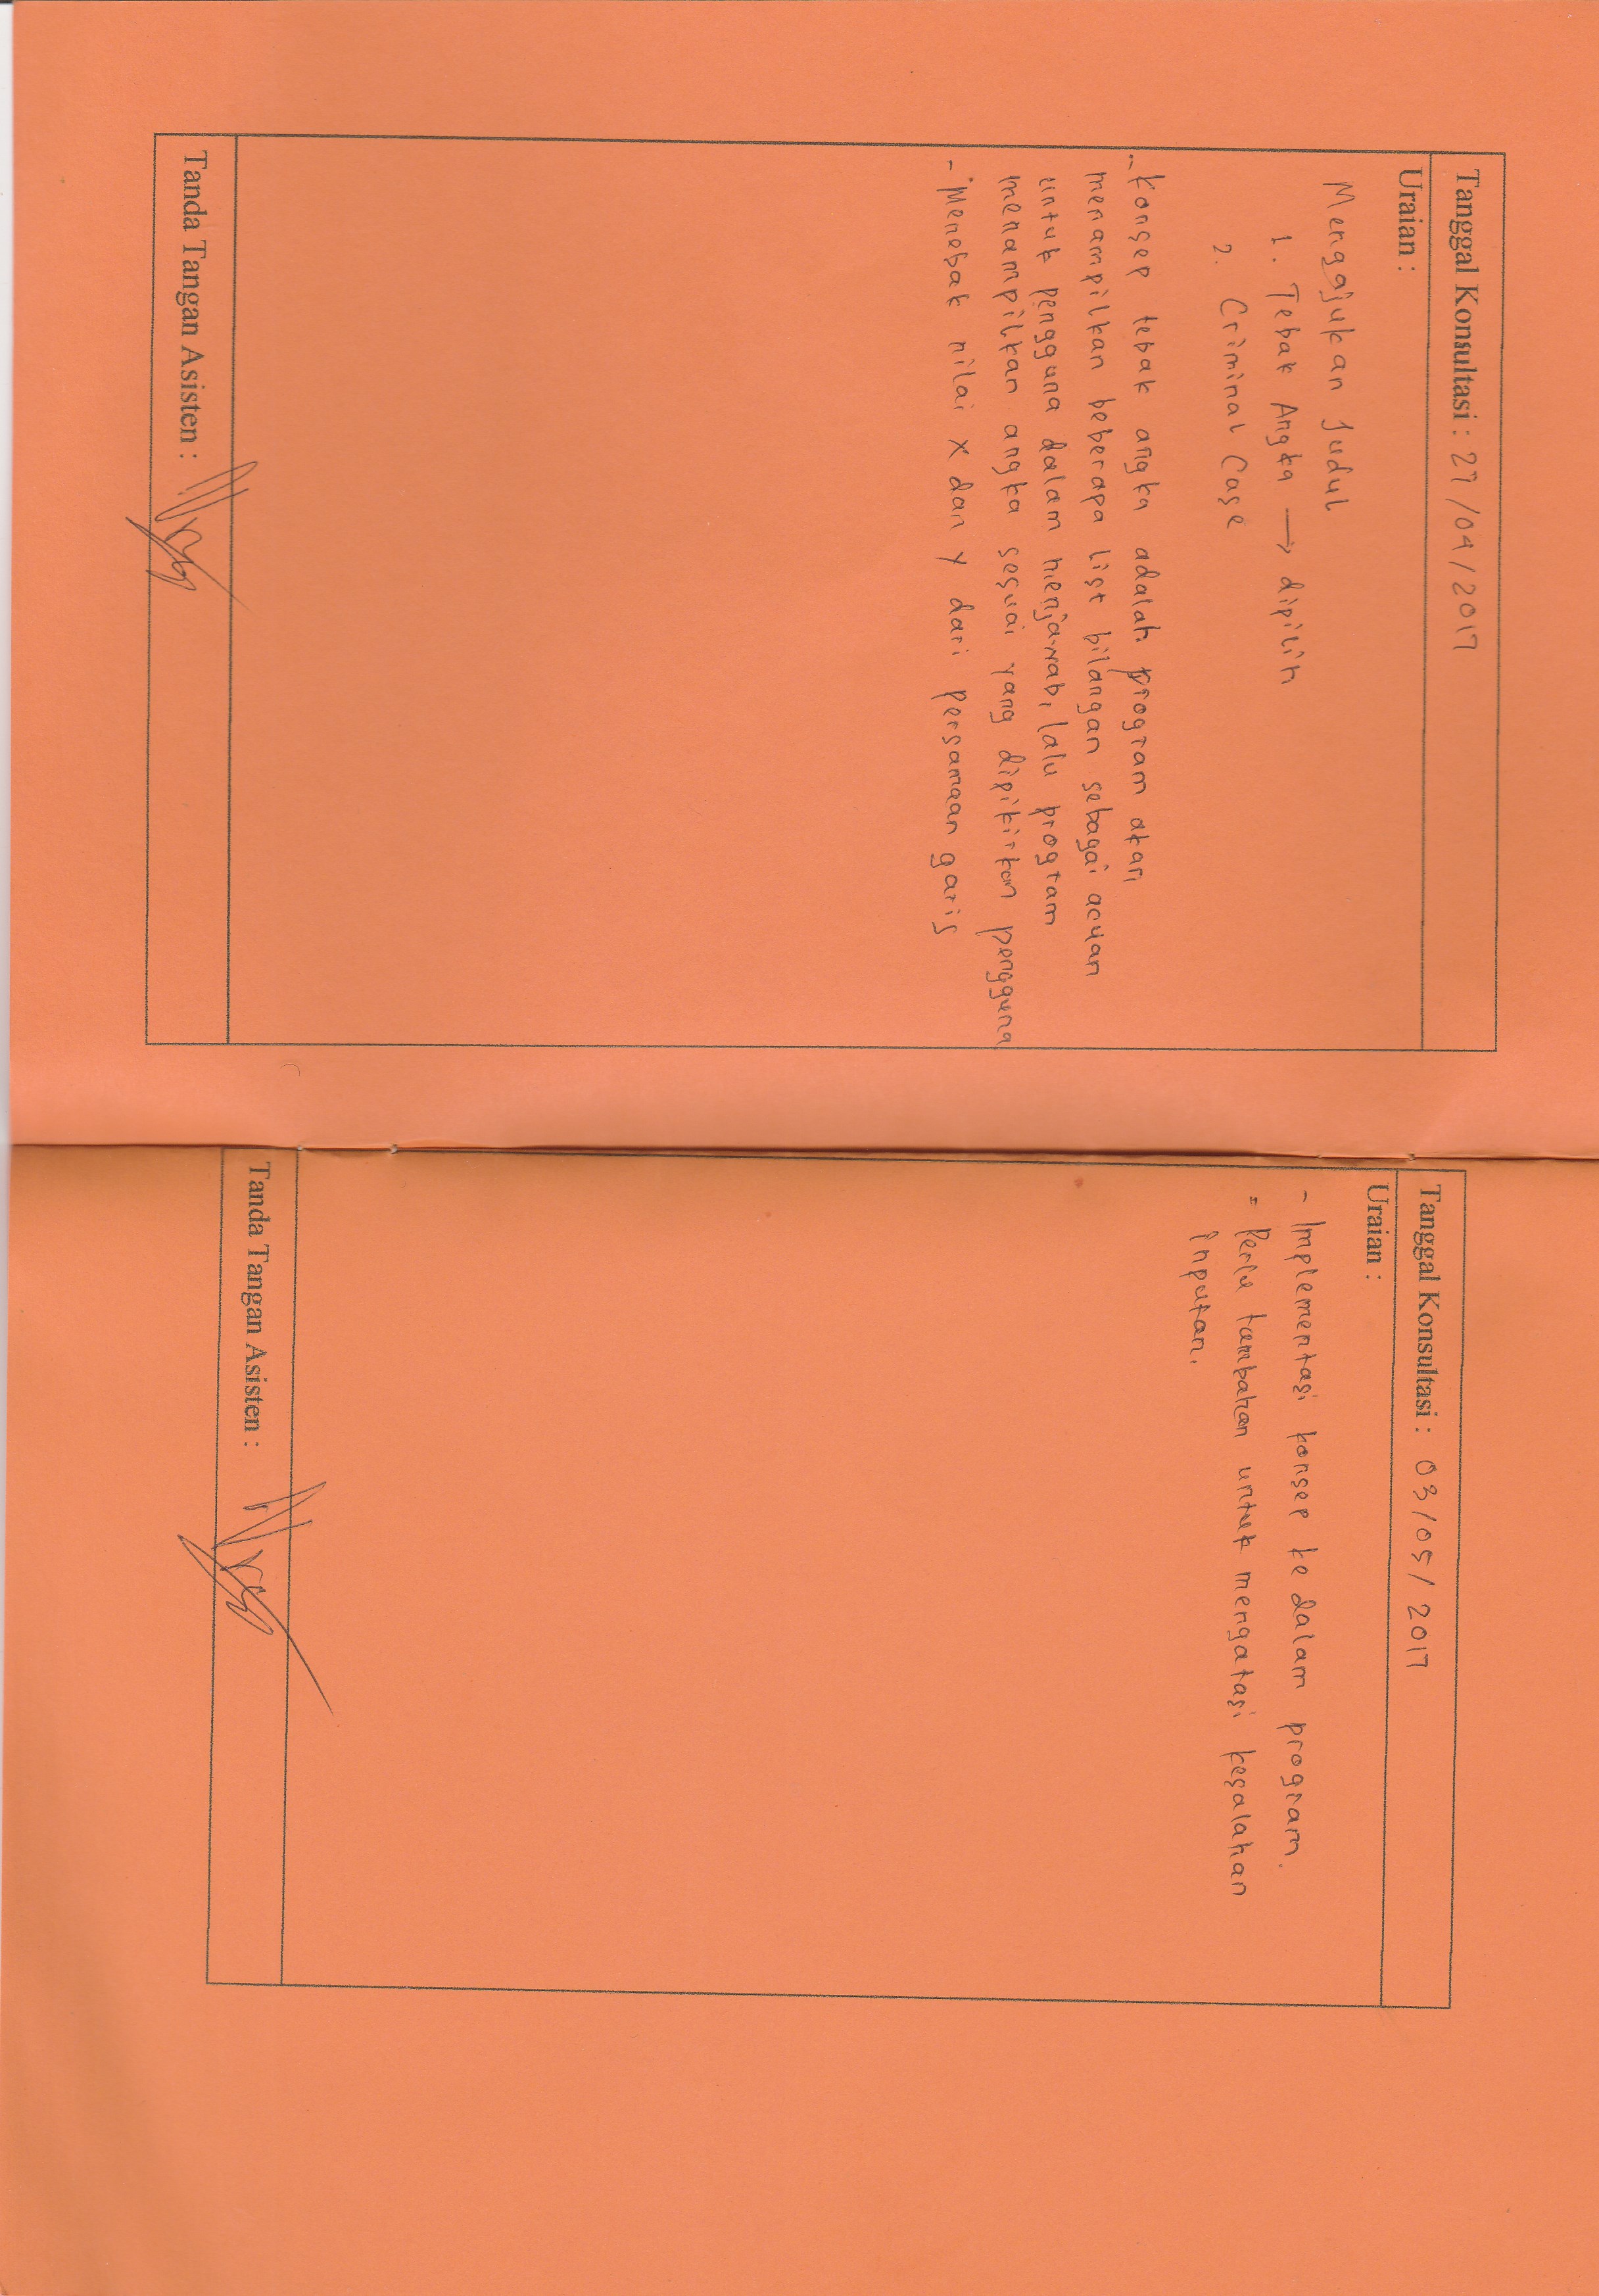 Tanggal Konsultasi : 27/04/2017
Uraian :
Mengajukan Judul
1. Tebak Angka → dipilih
2. Criminal Case
- Konsep tebak angka adalah program akan
menampilkan beberapa list bilangan sebagai acuan
untuk pengguna dalam menjawab, lalu program
menampilkan angka sesuai yang dipikirkan pengguna
- Menebak nilai x dan y dari persamaan garis
Tanda Tangan Asisten :
Tanggal Konsultasi : 03/05/2017
Uraian :
- Implementasi konsep ke dalam program.
- Perlu tambahan untuk mengatasi kesalahan
inputan.
Tanda Tangan Asisten :